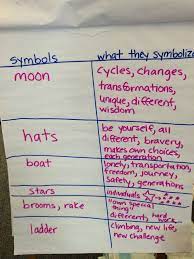 symbols what they symbolize
moon cycles, changes,
transformations,
unique, different,
wisdom
hats be yourself, all
different, bravery,
makes own choices,
each generation
boat lonely, transportation,
freedom, journey,
safety, generations
stars individuals
brooms, rake "own special
thing"
different, hard work
ladder climbing, new life,
new challenge